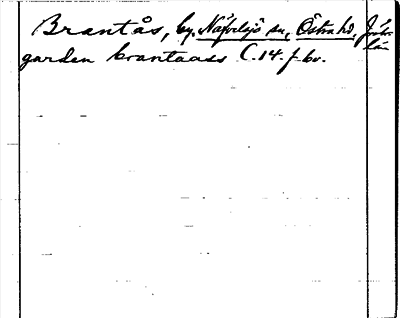 Brantås, by, Näfvelsjö sn, Östra hd, Jönk. län
garden brantaass C. 14. f. 60.